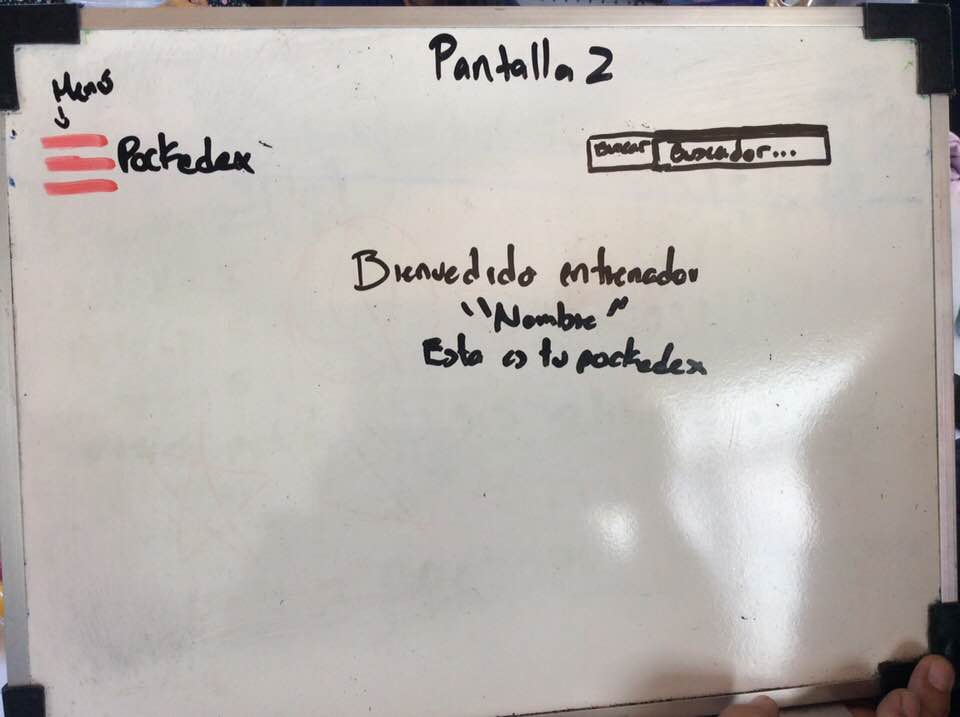 Pantalla 2
Menú
Pockedex
Buscar Buscador...
Bienvedido entrenador
"Nombre"
Esta es tu pockedex